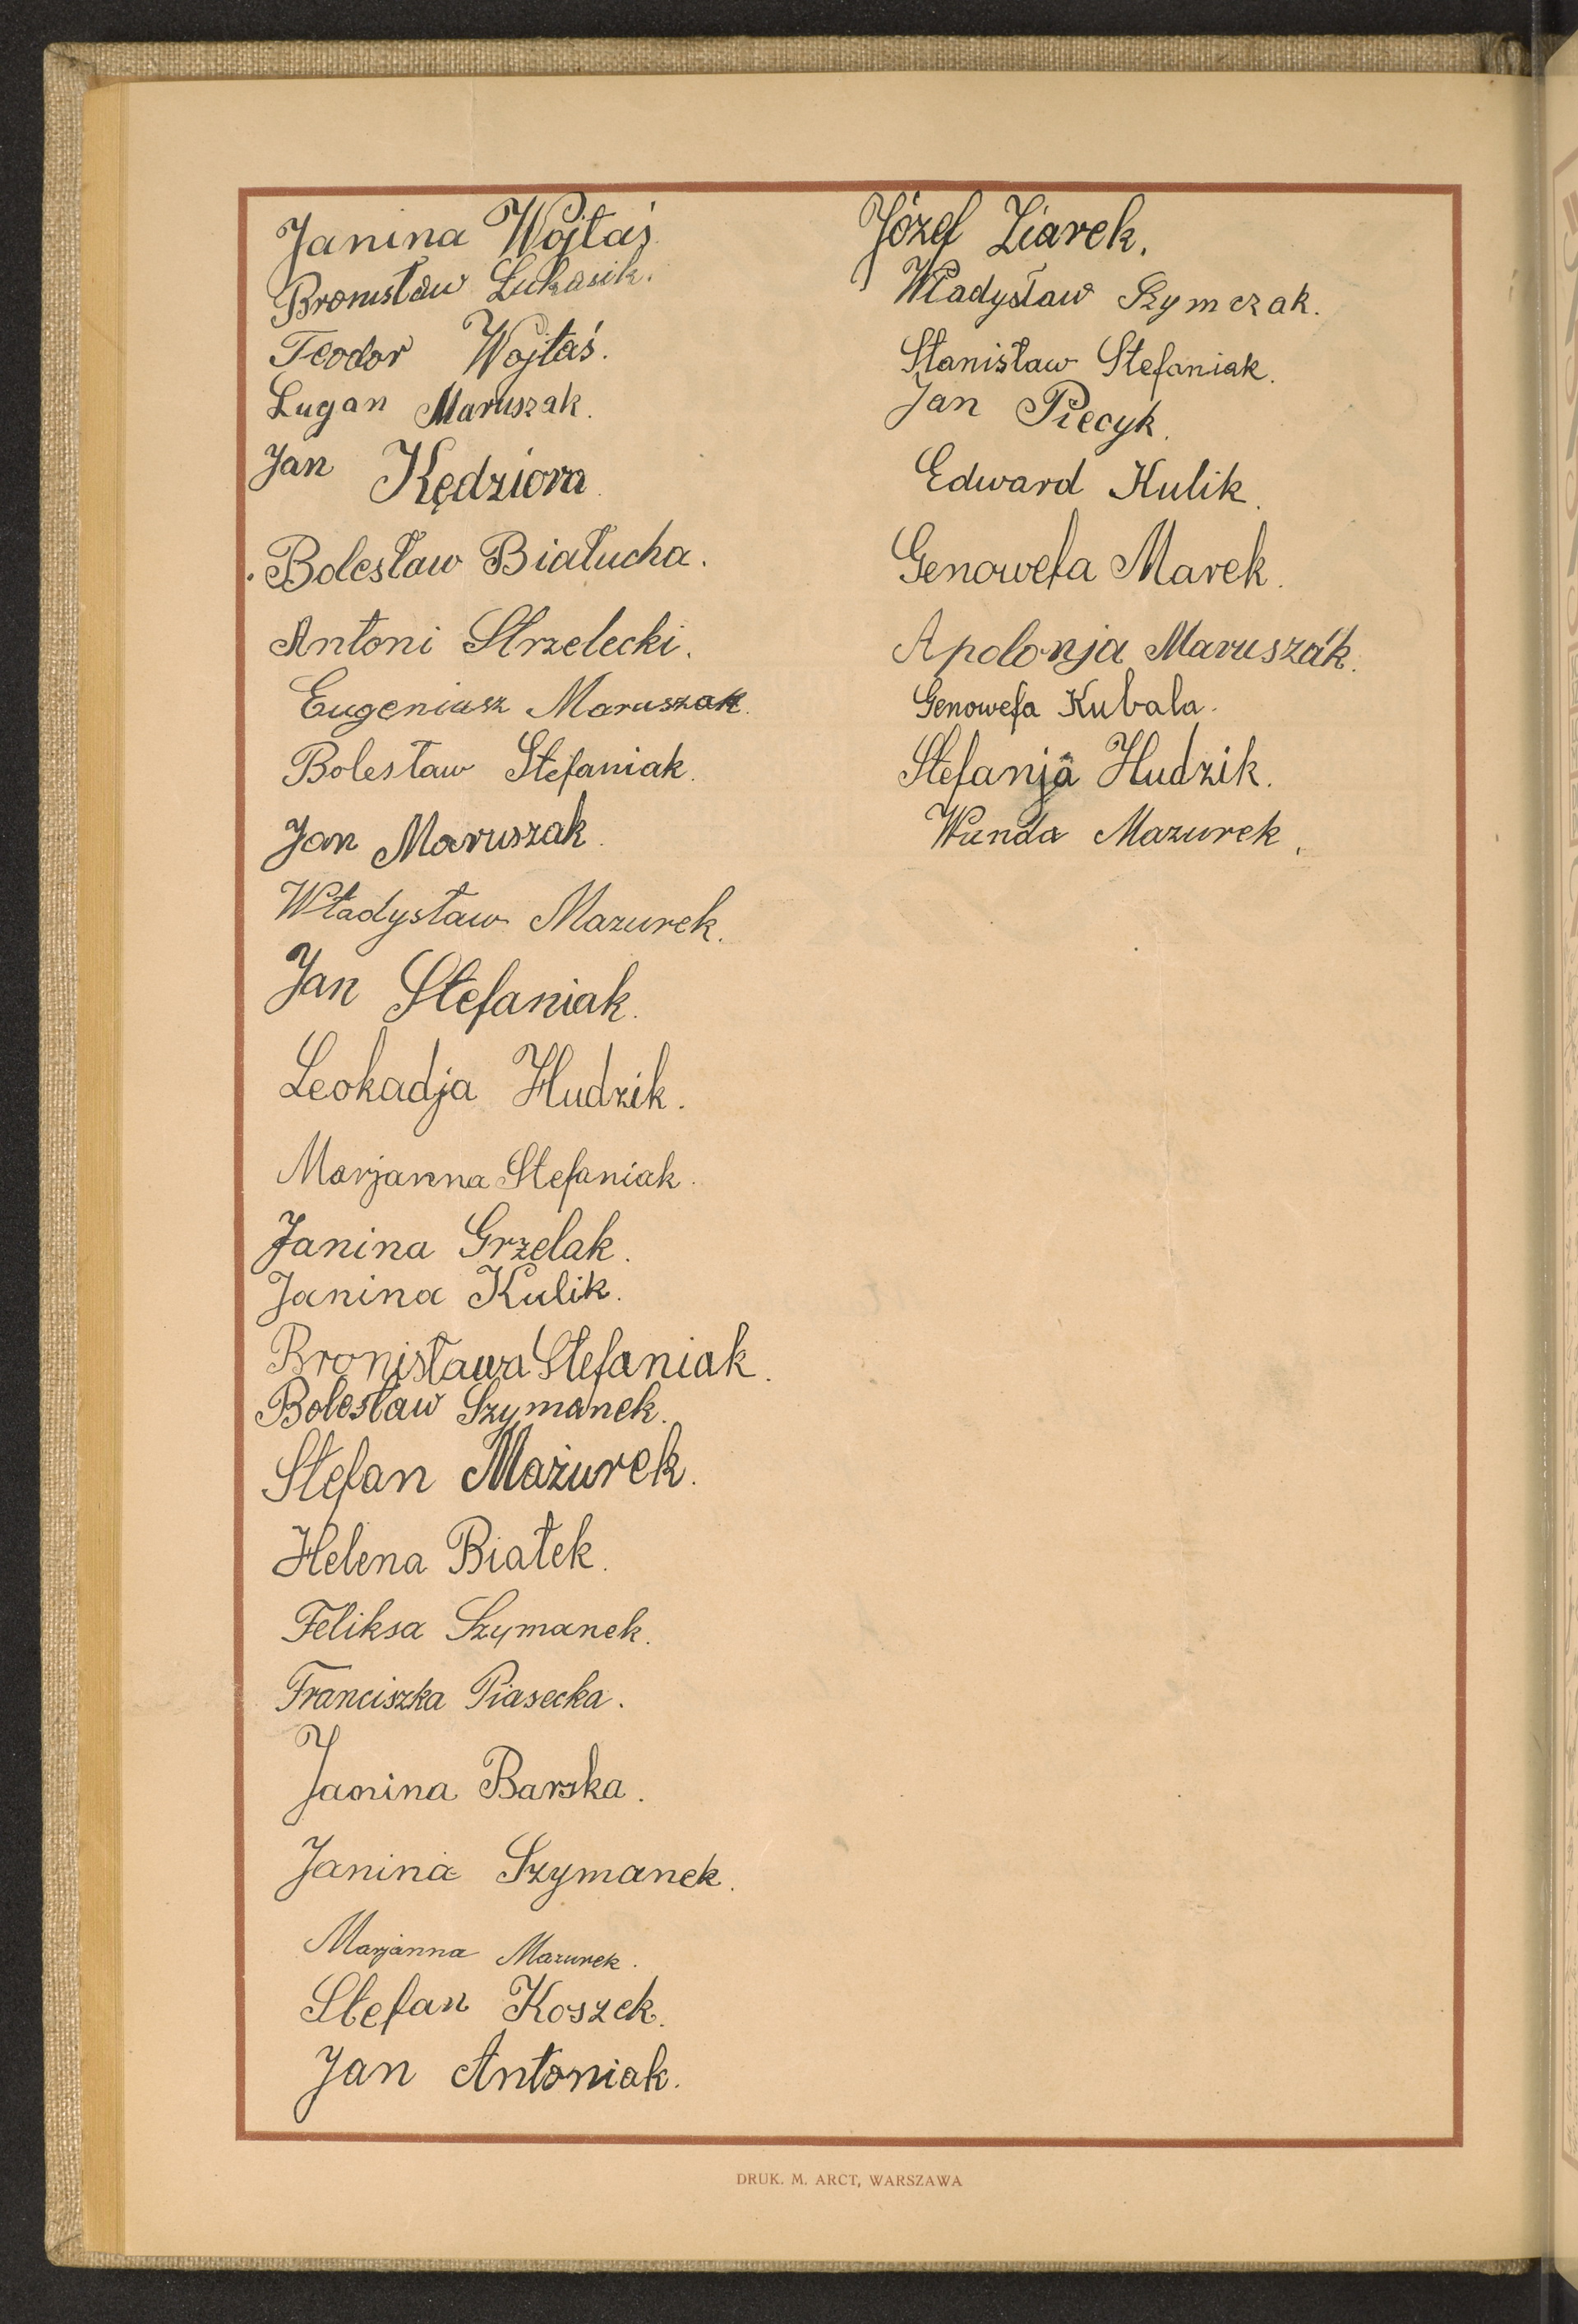 Janina Wojtaś.
Bronisław Łukasik.
Teodor Wojtaś.
Lugan Maruszak.
Jan Kędziora.
Bolesław Białucha.
Antoni Strzelecki.
Eugeniusz Maruszak.
Bolesław Stefaniak.
Jan Maruszak.
Władysław Mazurek.
Jan Stefaniak.
Leokadja Hudzik.
Marjanna Stefaniak.
Janina Grzelak.
Janina Kulik.
Bronisława Stefaniak.
Bolesław Szymanek.
Stefan Mażurek.
Helena Białek.
Feliksa Szymanek.
Franciszka Piasecka.
Janina Barska.
Janina Szymanek.
Marjanna Mazurek.
Stefan Koszek.
Jan Antoniak.
Józef Ziarek.
Władysław Szymczak.
Stanisław Stefaniak.
Jan Piecyk.
Edward Kulik.
Genowefa Marek.
Apolonja Maruszak.
Genowefa Kubala.
Stefanja Hudzik.
Wanda Mazurek.
DRUK. M. ARCT, WARSZAWA